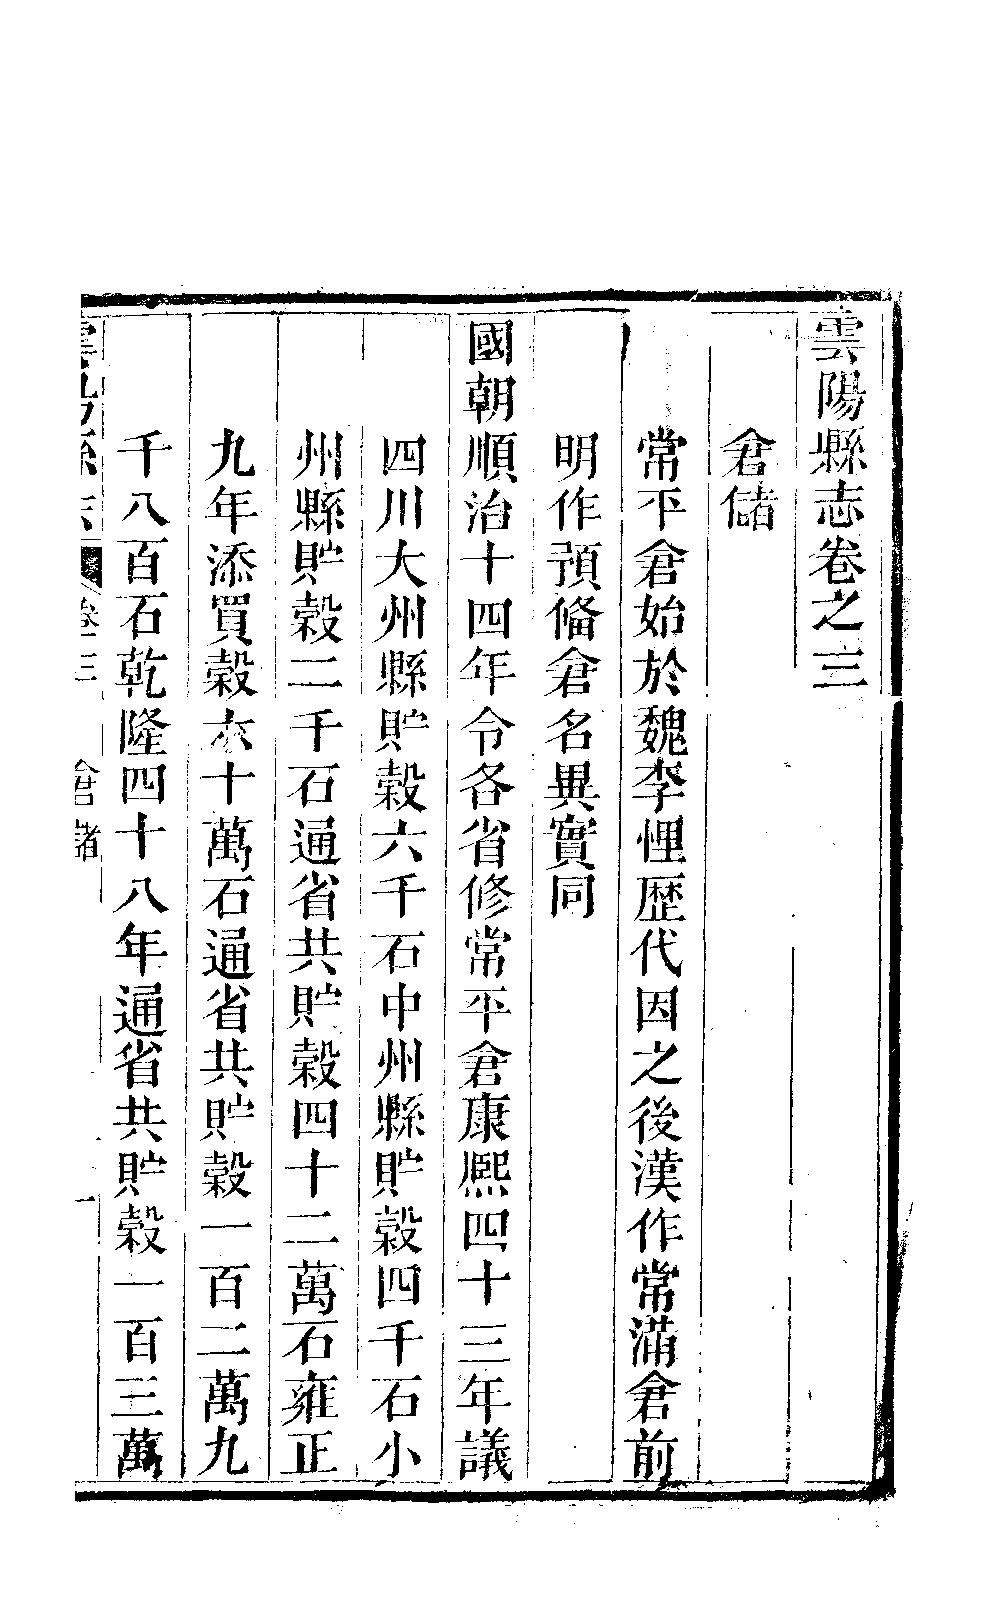 雲陽縣志卷之三
倉儲
常平倉始於魏李悝歷代因之後漢作常滿倉前
明作預備倉名異實同
國朝順治十四年令各省修常平倉康熙四十三年議
四川大州縣貯穀六千石中州縣貯穀四千石小
州縣貯穀二千石通省共貯穀四十二萬石雍正
九年添買穀六十萬石通省共貯穀一百二萬九
千八百石乾隆四十八年通省共貯穀一百三萬
雲陽縣志 卷三 倉儲 一